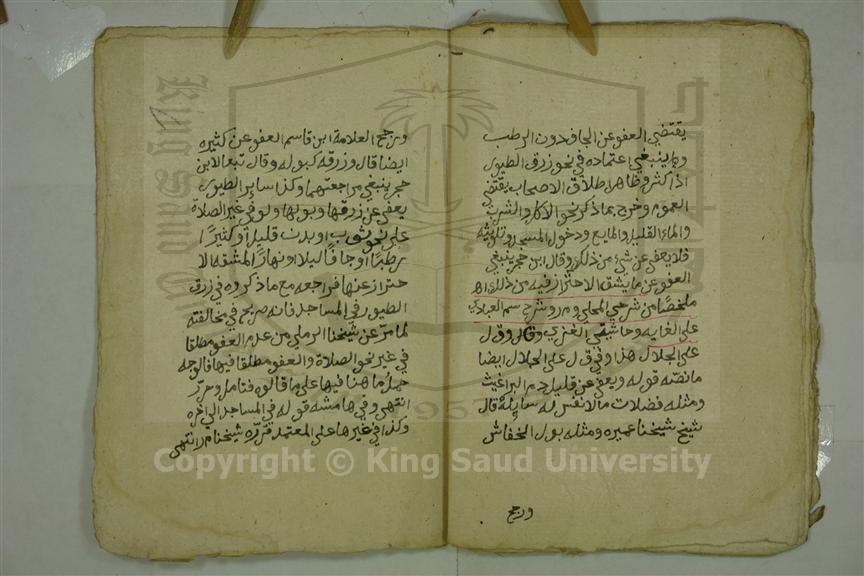 يقتضي العفو عن الجاف دون الرطب
وينبغي اعتماده في نحو زرق الطيور
اذا كثر وظاهر اطلاق الاصحاب يقتضي
العموم وخرج بما ذكر نحو الاكل والشرب
والماء القليل والمايع ودخول المسجد وتلويثه
فلا يعفى عن شيء من ذلك وقال ابن حجر ينبغي
العفو عن ما يشق الاحتراز فيه من ذلك اه
ملخصا من شرحي المحلي و م ر و شرح سم العبادي
على الغايه وحاشيتي العزي و ق ل
على الجلال هذا وفي ق ل على الجلال ايضا
ما نصه قوله ويعفى عن قليل دم البراغيث
ومثله فضلات ما لا نفس له سايلة قال
شيخ شيخنا عميره ومثله بول الخفاش
ورجح
ورجح العلامة ابن قاسم العفو عن كثيره
ايضا قال وزرقه كبوله وقال تبعا لابن
حجر ينبغي مراجعتهما وكذا ساير الطيور
يعفى عن زرقها وبولها ولو في غير الصلاة
على نحو ثوب او بدن قليلا او كثيرا
رطبا او جافا ليلا او نهارا لمشقة الا
حتراز عنها فراجعه مع ما ذكروه في زرق
الطيور في المساجد فانه صريح في مخالفته
لما مر عن شيخنا الرملي من عدم العفو مطلقا
في غير نحو الصلاة والعفو مطلقا فيها فالوجه
حمل ما هنا فيها على ما قالوه فتامل وحرر
انتهى وفي هامشه قوله في المساجد الى اخره
وكذا في غيرها على المعتمد قرره شيخنا م ر انتهى
Copyright © King Saud University
King Saud University
1957